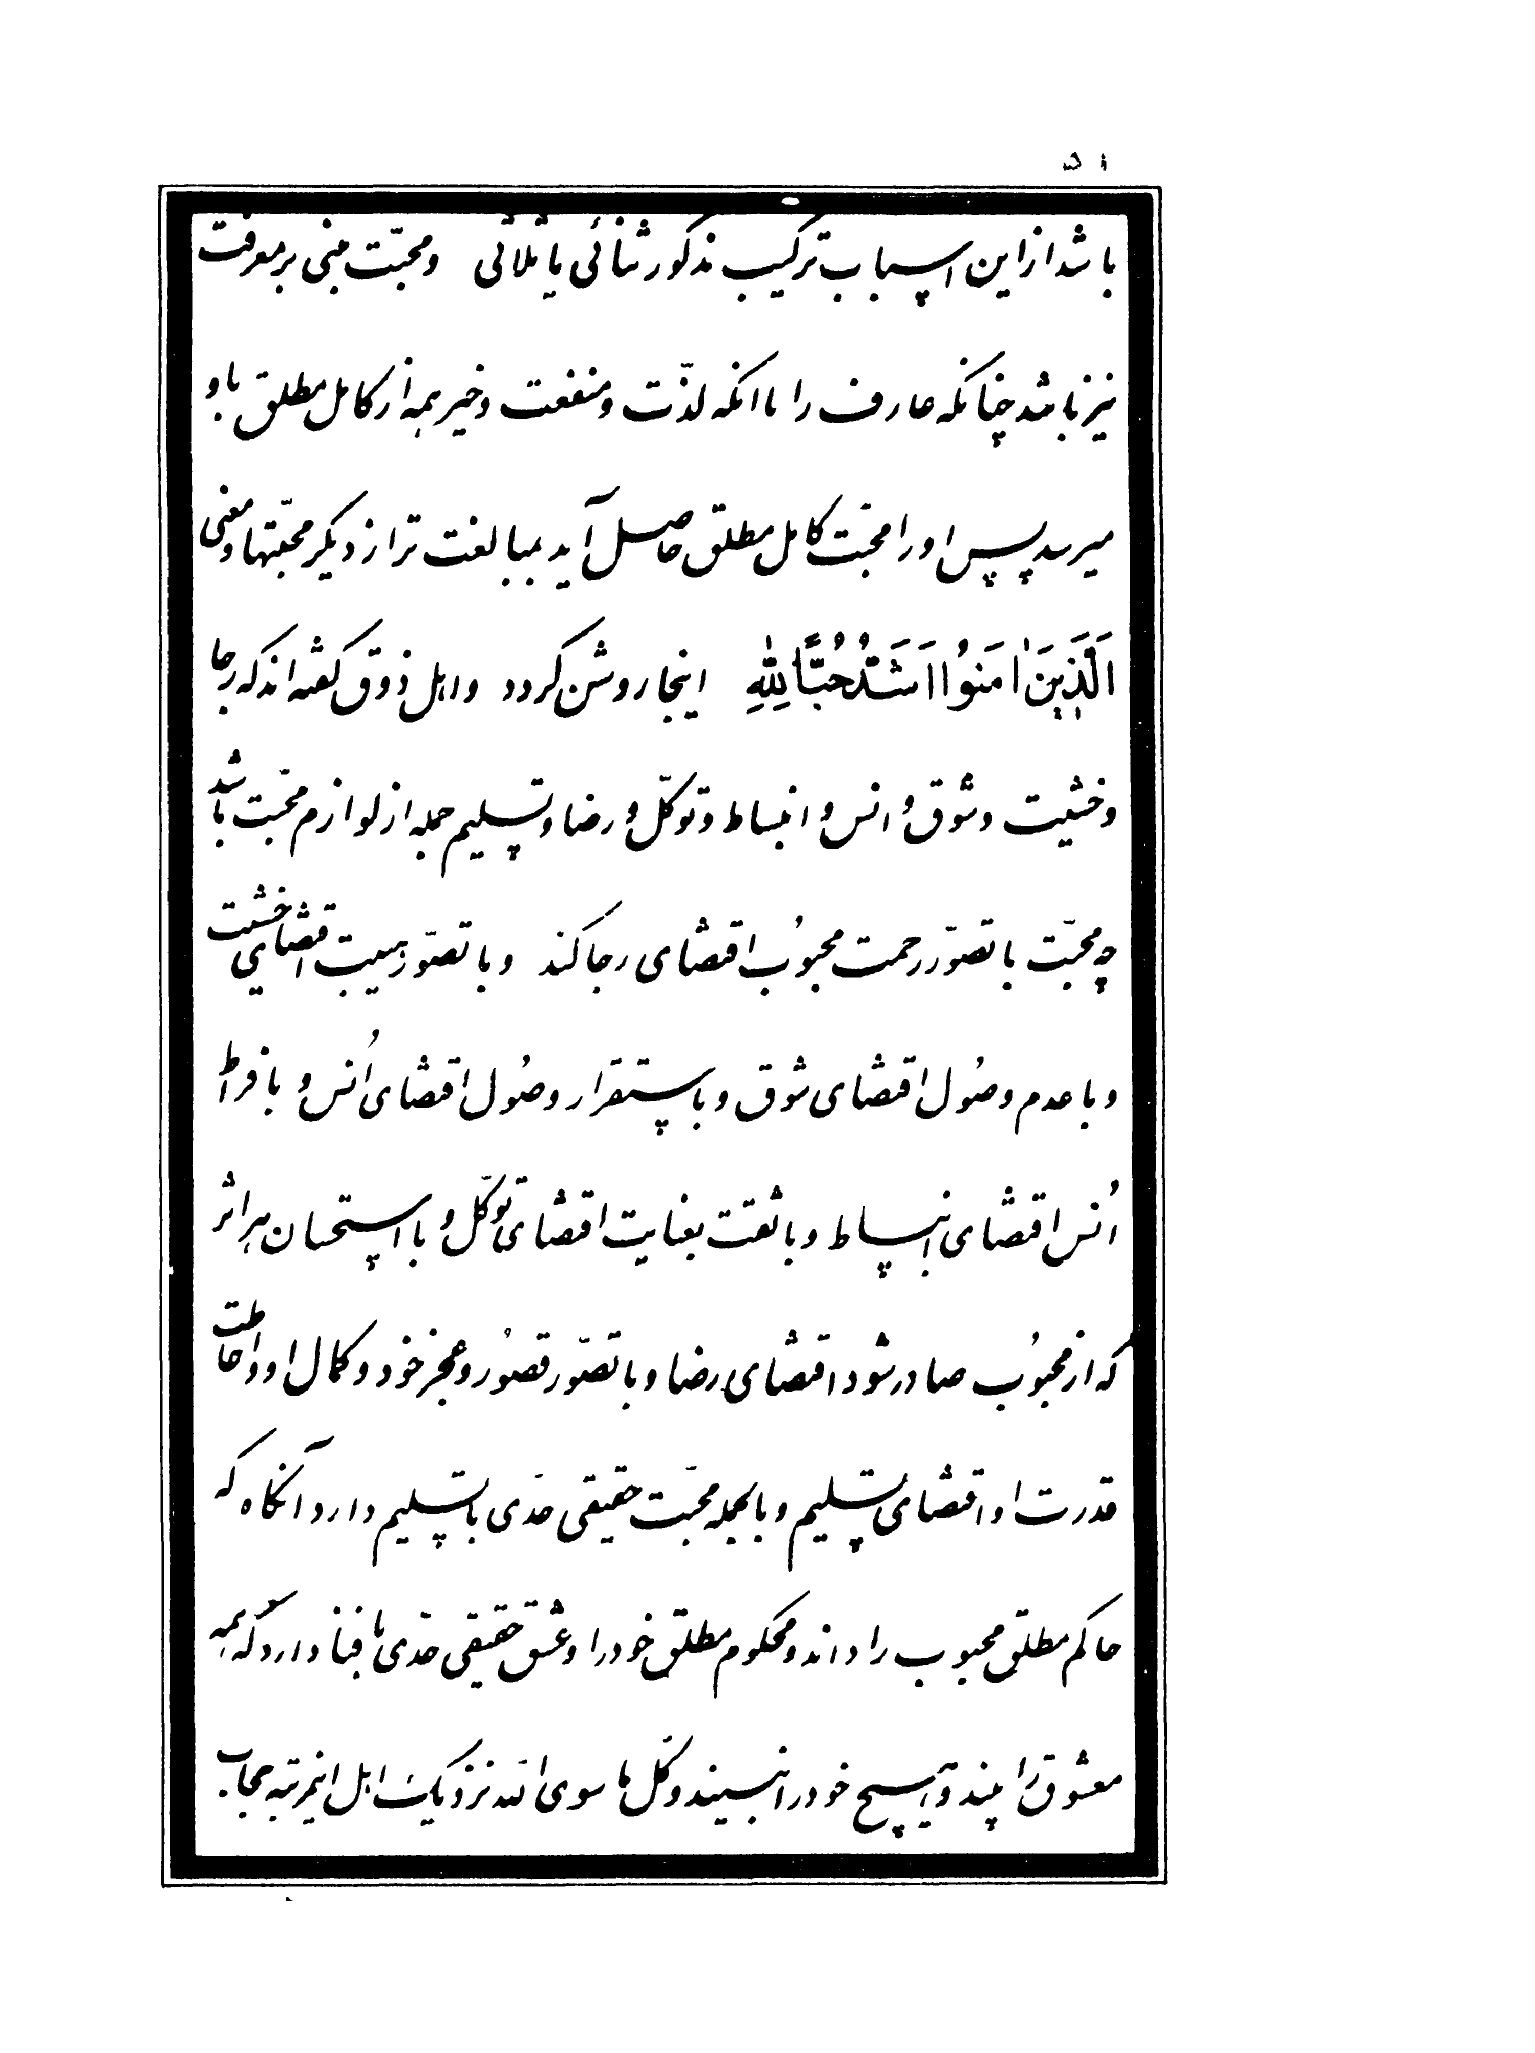 ۵۱
باشد از این اسباب ترکیب مذکور ثنائی یا ثلاثی و محبّت مبنی بر معرفت
نیز باشد چنانکه عارف را با انکه لذّت و منفعت و خیر همه از کامل مطلق باو
میرسد پس او را محبّت کامل مطلق حاصل آید بمبالغت تر از دیگر محبّتها و معنی
اَلَّذینَ اٰمَنوُا اَشَدُّ حُبًّا لِلّٰهِ اینجا روشن گردد و اهل ذوق گفته اند که رجا
و خشیت و شوق و انس و انبساط و توکّل و رضا و تسلیم جمله از لوازم محبّت باشد
چه محبّت با تصوّر رحمت محبوُب اقتضای رجا کند و با تصوّر هیبت اقتضای خشیت
و با عدم وصُول اقتضای شوق و با ستقرار وصُول اقتضای اُنس و بافراط
اُنس اقتضای انبساط و با ثقت بعنایت اقتضای توکّل و با استحسان هر اثر
که از محبوُب صادر شود اقتضای رضا و با تصوّر قصوُر و عجز خود و کمال او و احاطت
قدرت او اقتضای تسلیم و بالجمله محبّت حقیقی حدّی با تسلیم دارد آنگاه که
حاکم مطلق محبوب را داند و محکوم مطلق خود را و عشق حقیقی حدّی با فنا دارد که همه
معشوق را بیند و هیچ خود را نبیند و کلّ ما سوی اللّه نزدیک اهل اینمرتبه حجاب